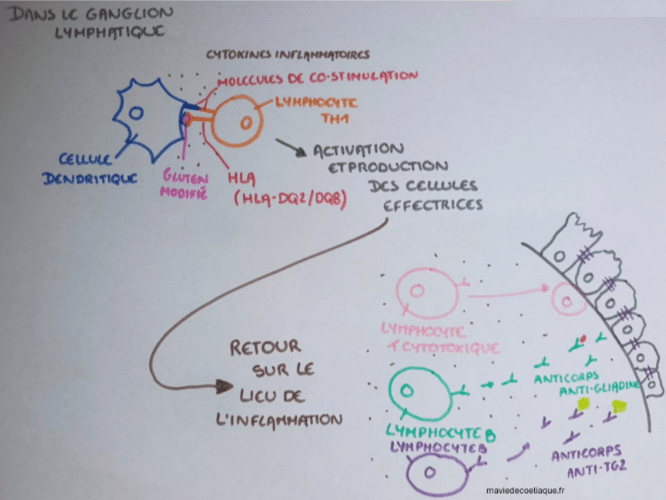 DANS LE GANGLION
LYMPHATIQUE
CYTOKINES INFLAMMATOIRES
MOLECULES DE CO-STIMULATION
LYMPHOCYTE
TH1
CELLULE
DENDRITIQUE
GLUTEN
MODIFIÉ
HLA
(HLA-DQ2/DQ8)
ACTIVATION
ET PRODUCTION
DES CELLULES
EFFECTRICES
RETOUR
SUR LE
LIEU DE
L'INFLAMMATION
LYMPHOCYTE
T CYTOTOXIQUE
ANTICORPS
ANTI-GLIADINE
LYMPHOCYTE B
LYMPHOCYTE B
ANTICORPS
ANTI-TG2
maviedecoeliaque.fr